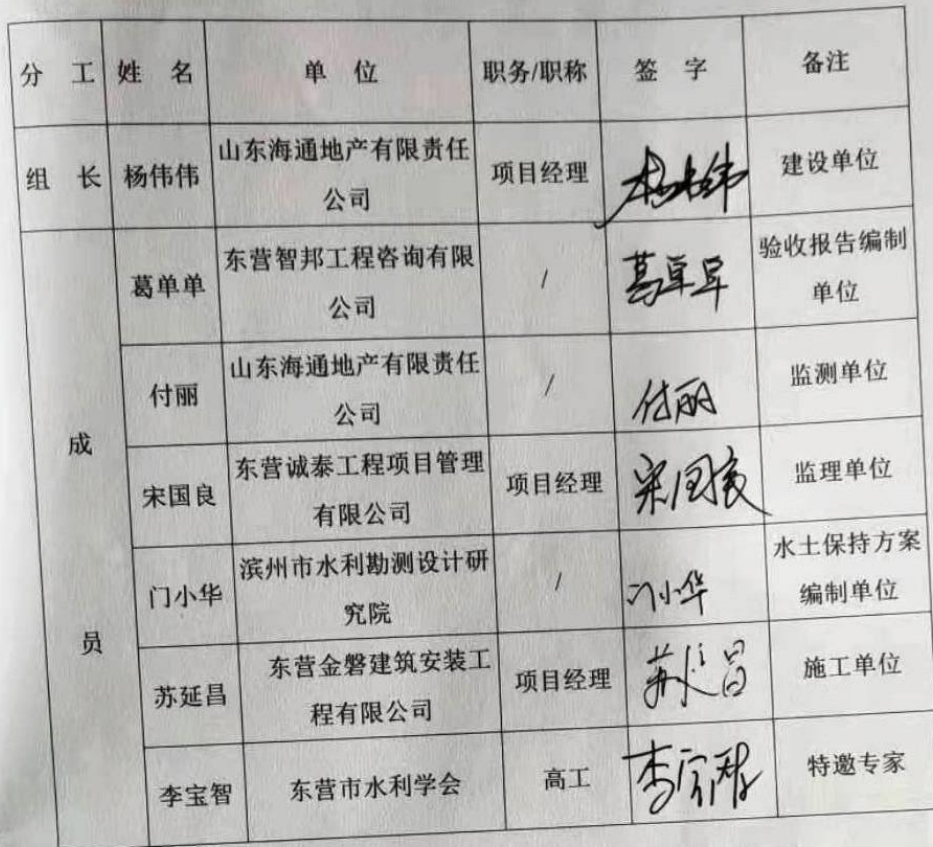 分 工 姓 名 单 位 职务/职称 签 字 备注
组 长 杨伟伟 山东海通地产有限责任
公司 项目经理 杨伟伟 建设单位
成
员
葛单单 东营智邦工程咨询有限
公司 / 葛单单 验收报告编制
单位
付丽 山东海通地产有限责任
公司 / 付丽 监测单位
宋国良 东营诚泰工程项目管理
有限公司 项目经理 宋国良 监理单位
门小华 滨州市水利勘测设计研
究院 / 门小华 水土保持方案
编制单位
苏延昌 东营金磐建筑安装工
程有限公司 项目经理 苏延昌 施工单位
李宝智 东营市水利学会 高工 李宝智 特邀专家